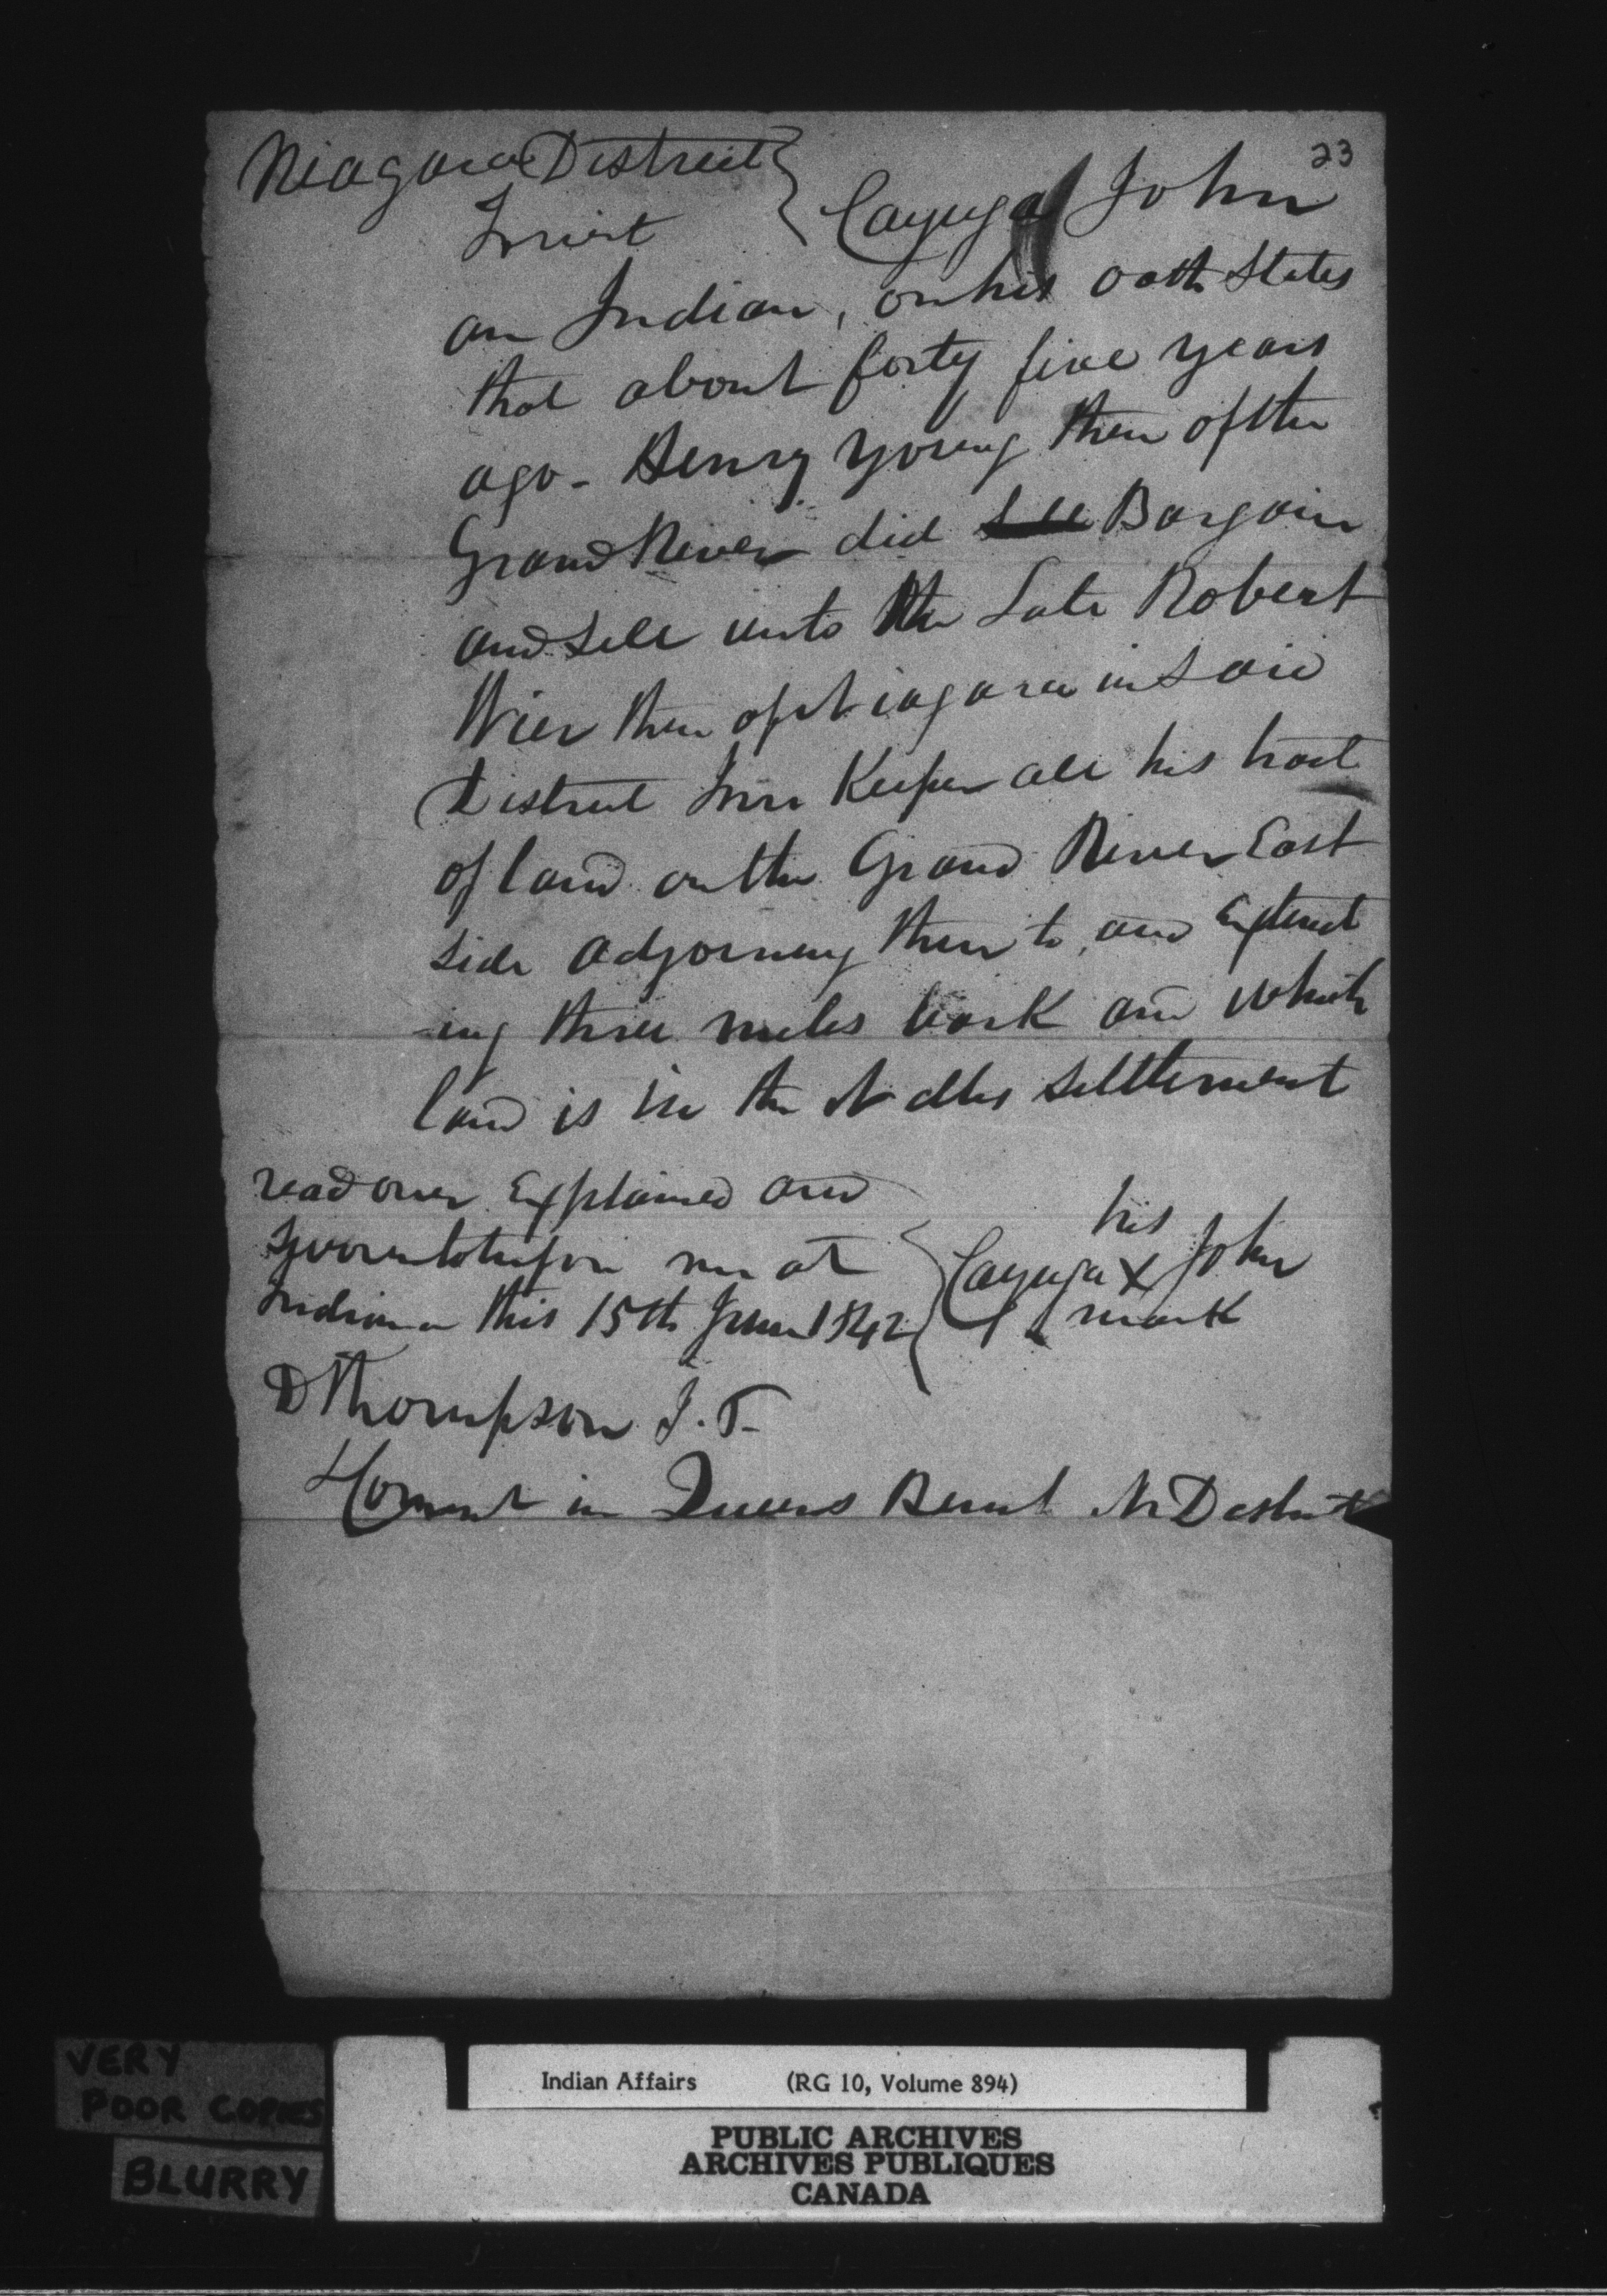 23
Niagara District
To wit } Cayuga John
an Indian, on his oath States
that about forty five years
ago - Henry Young then of the
Grand River did Bargain
and Sell unto the Late Robert
Wier then of Niagara in Said
District Inn Keeper all his tract
of land on the Grand River East
side adjoining there to, and Extend
-ing three miles back and which
land is in the Nelles Settlement
read over Explained and
Sworn to before me at
Indiana this 15th June 1842
his
Cayuga X John
mark
D Thompson J. P.
in Queens Bench N. District
VERY
POOR COPIES
BLURRY
Indian Affairs (RG 10, Volume 894)
PUBLIC ARCHIVES
ARCHIVES PUBLIQUES
CANADA